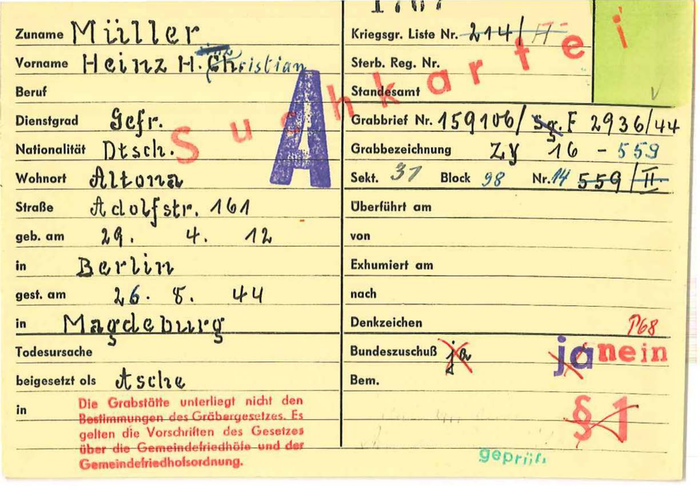 Zuname Müller
Vorname Heinz H. Christian
Beruf
Dienstgrad Gefr.
Nationalität Dtsch.
Wohnort Altona
Straße Adolfstr. 161
geb. am 29. 4. 12
in Berlin
gest. am 26. 8. 44
in Magdeburg
Todesursache
beigesetzt als Asche
in
Die Grabstätte unterliegt nicht den
Bestimmungen des Gräbergesetzes. Es
gelten die Vorschriften des Gesetzes
über die Gemeindefriedhöfe und der
Gemeindefriedhofsordnung.
Suchkartei
A
Kriegsgr. Liste Nr. 214/II
Sterb. Reg. Nr.
Standesamt
Grabbrief Nr. 159106/ F 2936/44
Grabbezeichnung ZY 16 - 559
Sekt. 31 Block 98 Nr. 14 559/II
Überführt am
von
Exhumiert am
nach
Denkzeichen P68
Bundeszuschuß ja ja nein
Bem.
§ 1
geprüft